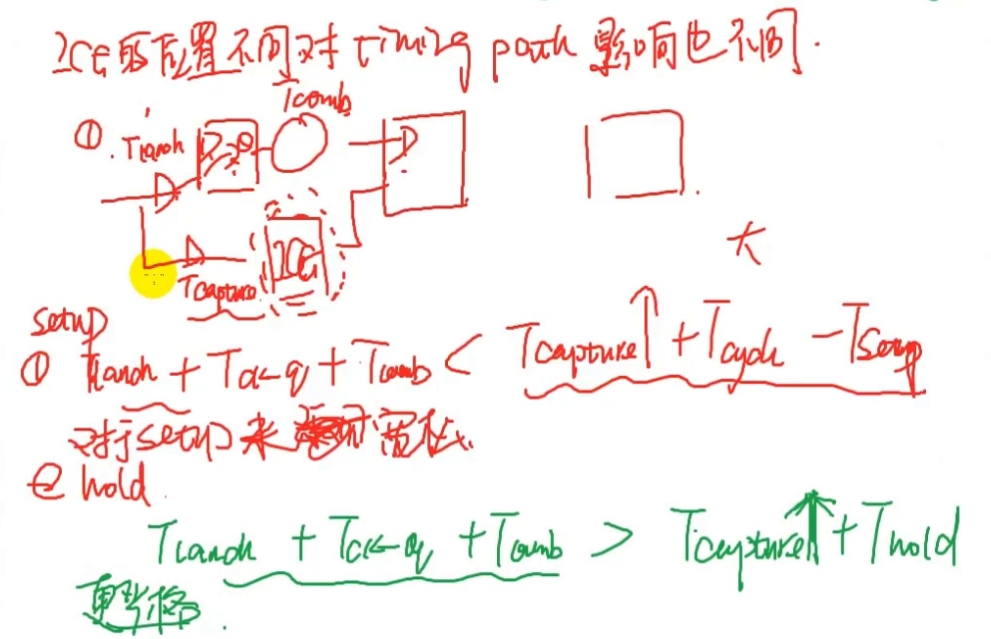 ICG的位置不同对timing path影响也不同.
Tcomb
① Tlanch D Q D
ICG
Tcapture
大
setup
① Tlanch + Tck-q + Tcomb < Tcapture↑ + Tcycle - Tsetup
对于setup来 宽松.
② hold
Tlanch + Tck-q + Tcomb > Tcapture↑ + Thold
更严格.